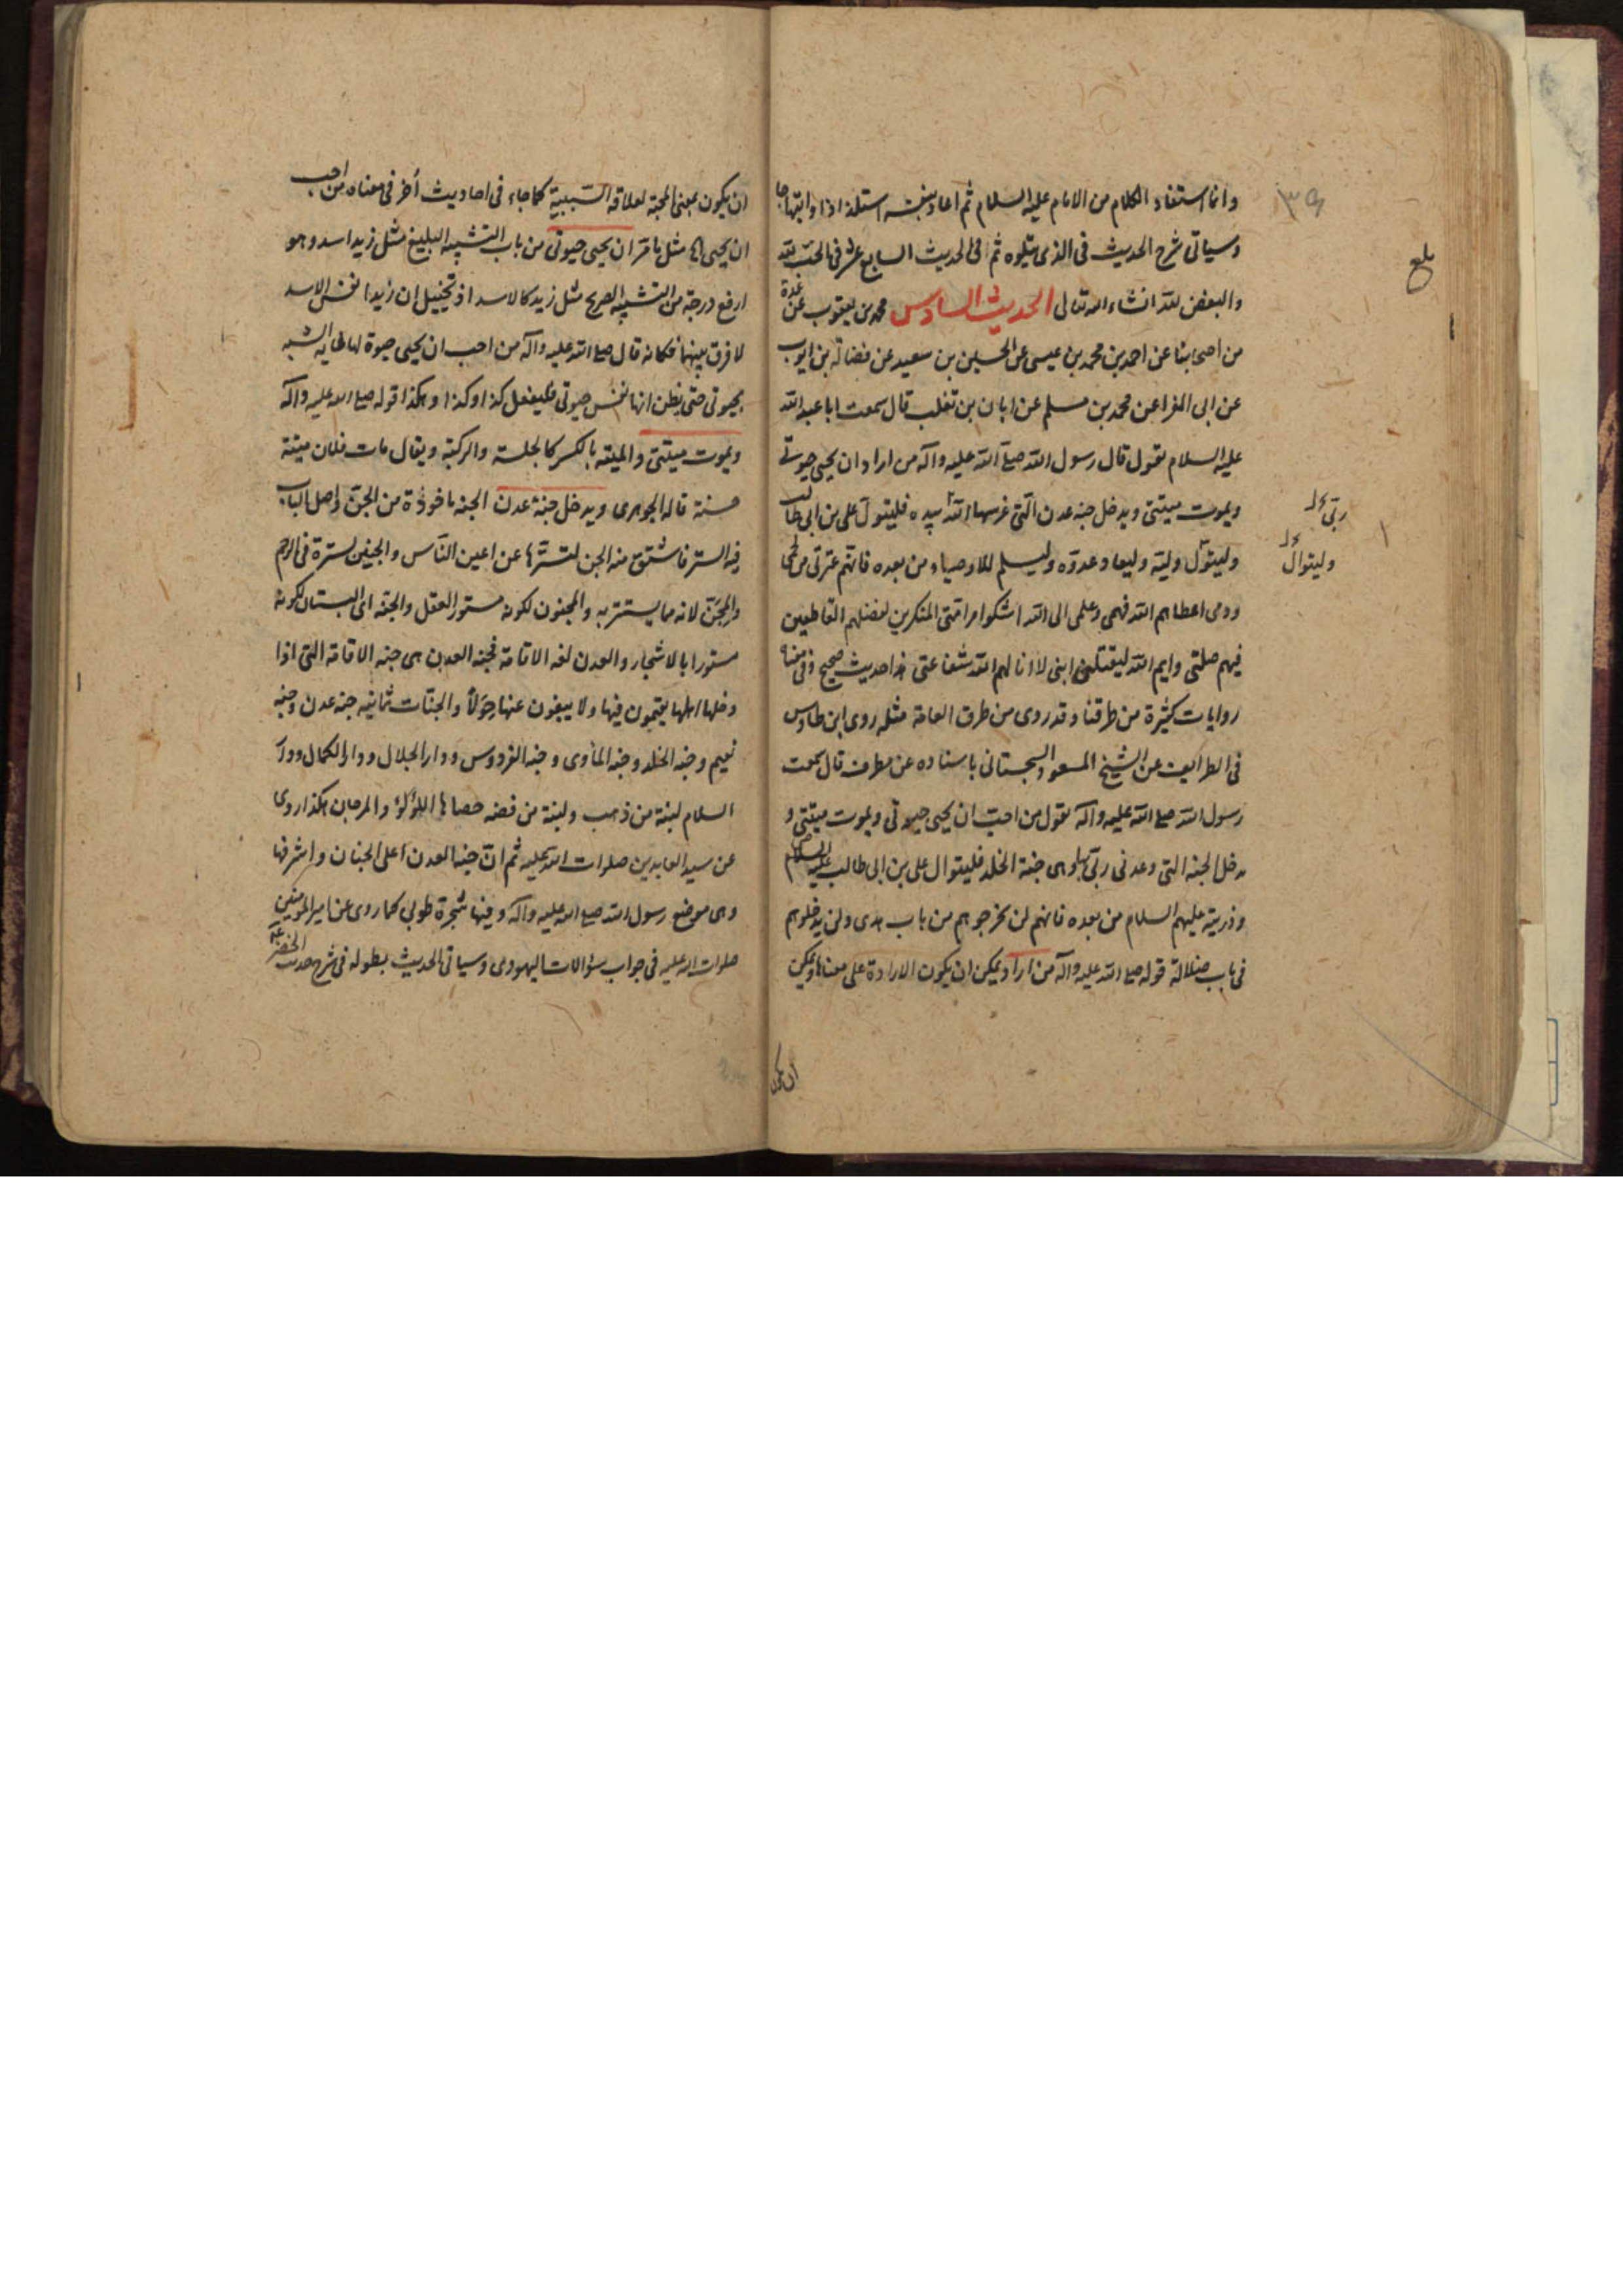 وانما استفاد الكلام من الامام عليه السلام ثم اعاد بنفسه استلذاذا وابتهاجا
وسياتى شرح الحديث فى الذى يتلوه ثم فى الحديث السابع عشر فى الحب لله
والبغض لله انشاء الله تعالى الحديث السادس محمد بن يعقوب عن عدة
من اصحابنا عن احمد بن محمد بن عيسى عن الحسين بن سعيد عن فضالة بن ايوب
عن ابى المغرا عن محمد بن مسلم عن ابان بن تغلب قال سمعت ابا عبد الله
عليه السلام يقول قال رسول الله صلى الله عليه وآله من اراد ان يحيى حيوتى
ويموت ميتتى ويدخل جنه عدن التى غرسها الله بيده فليتول على بن ابى طالب
وليتول وليه وليعاد عدوه وليسلم للاوصياء من بعده فانهم عترتى من لحمى
ودمى اعطاهم الله فهمى وعلمى الى الله اشكوا امر امتى المنكرين لفضلهم القاطعين
فيهم صلتى وايم الله ليقتلن ابنى لا انا لهم الله شفاعتى هذا حديث صحيح وفى معناه
روايات كثيرة من طرقنا وقد روى من طرق العامة مثله روى ابن طاوس
فى الطرايف عن الشيخ المسعود السجستانى باسناده عن مطرف قال سمعت
رسول الله صلى الله عليه وآله يقول من احب ان يحيى حيوتى ويموت ميتتى و
يدخل الجنه التى وعدنى ربى بها وهى جنة الخلد فليتوال على بن ابى طالب عليه السلام
وذريته عليهم السلام من بعده فانهم لن يخرجوهم من باب هدى ولن يدخلوهم
فى باب ضلالة قوله صلى الله عليه وآله من اراد يمكن ان يكون الارادة على معناها ويمكن
ان يكون
١٣٩
بلغ
ربى
وليتوال
ان يكون بمعنى المحبة لعلاقة السببية كما جاء فى احاديث أخر فى معناه من احب
ان يحيى مثل ما قر ان يحيى حيوتى من باب التشبيه البليغ مثل زيد اسد وهو
ارفع درجة من التشبيه الصريح مثل زيد كالاسد اذ تخييل ان زيدا نفس الاسد
لا فرق بينهما فكانه قال صلى الله عليه وآله من احب ان يحيى حيوة لها غاية الشبه
بحيوتى حتى يظن انها نفس حيوتى فليفعل كذا وكذا وهكذا قوله صلى الله عليه وآله
ويموت ميتتى والميته بالكسر كالجلسة والركبة ويقال مات فلان ميتة
حسنة قاله الجوهرى ويدخل جنة عدن الجنه ماخوذة من الجن واصل الباب
فيه الستر فاشتق منه الجن لتسترها عن اعين الناس والجنين لستره فى الرحم
والمجن لانه مما يستتر به والمجنون لكونه مستور العقل والجنه اى البستان لكونه
مستورا بالاشجار والعدن لغه الاقامة فجنه العدن هى جنه الاقامة التى اذا
دخلها اهلها يقيمون فيها ولا يبغون عنها حولا والجنات ثمانيه جنه عدن وجنه
نعيم وجنه الخلد وجنه المأوى وجنه الفردوس ودار الجلال ودار الكمال ودار
السلام لبنة من ذهب ولبنة من فضه حصاها اللؤلؤ والمرجان هكذا روى
عن سيد العابدين صلوات الله عليه ثم ان جنه العدن اعلى الجنان واشرفها
وهى موضع رسول الله صلى الله عليه وآله وفيها شجرة طوبى كما روى عن امير المؤمنين
صلوات الله عليه فى جواب سؤالات اليهودى وسياتى الحديث بطوله فى شرح حديث الخضر